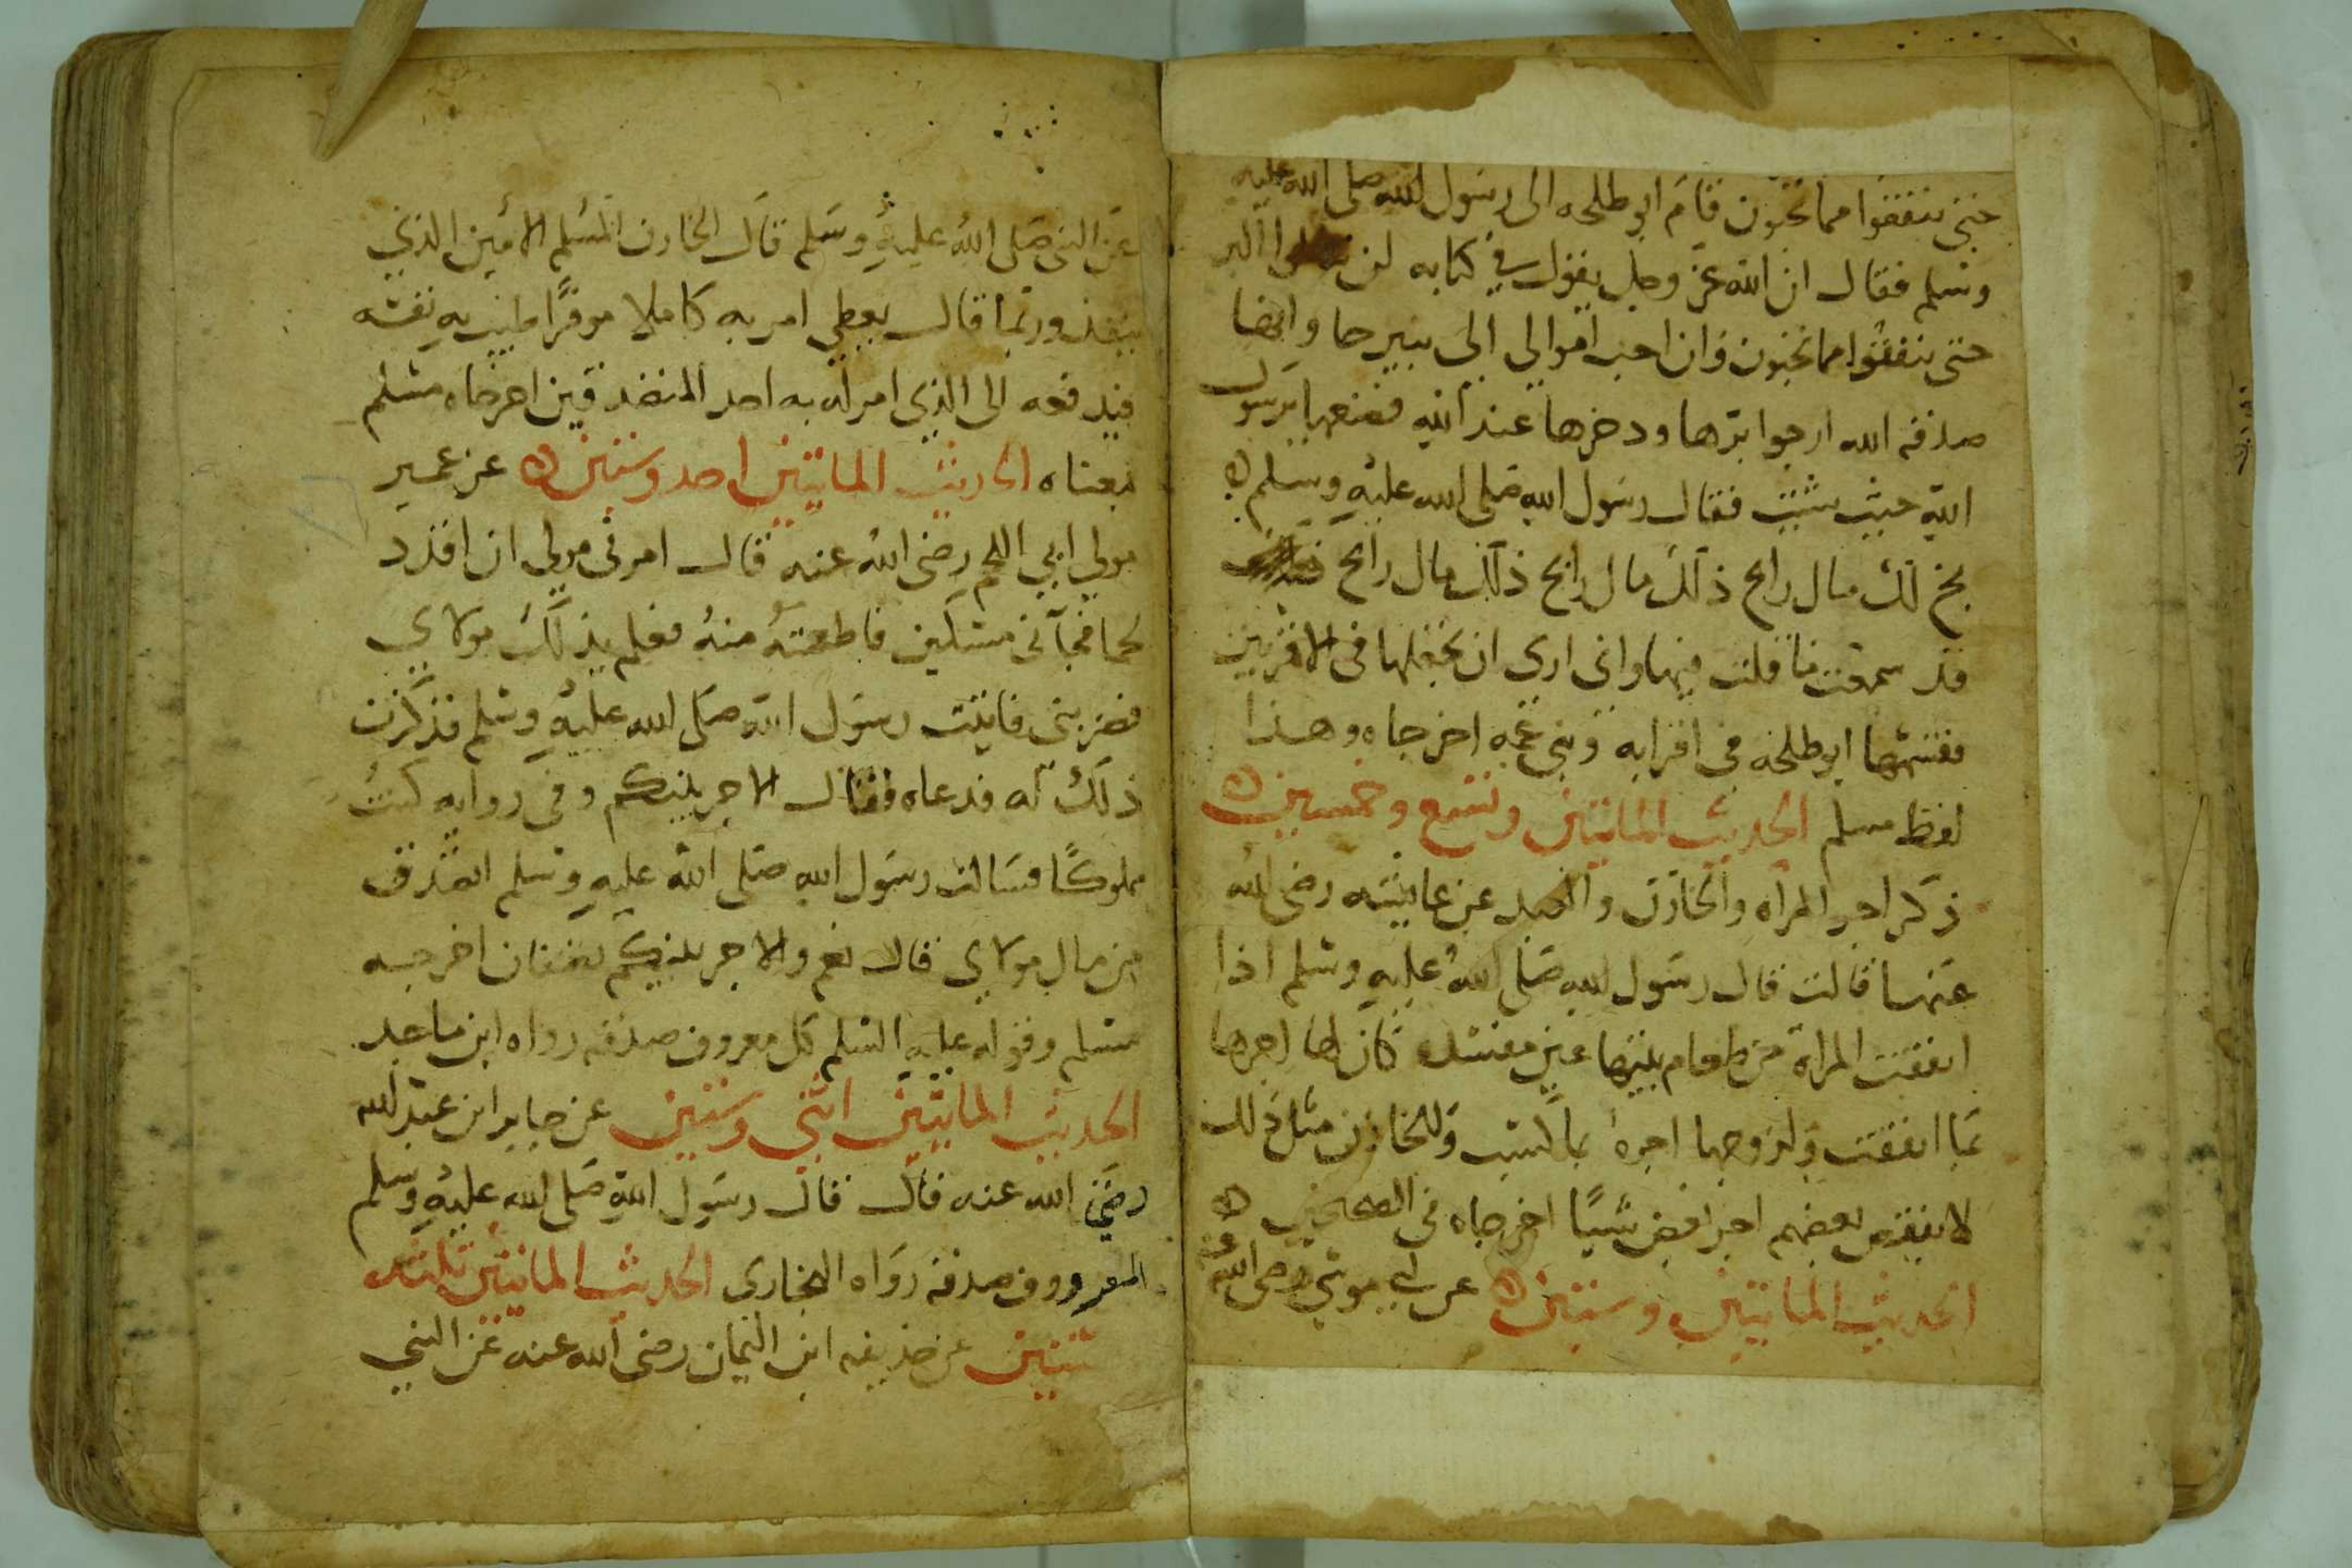 حتى تنفقوا مما تحبون فقام ابو طلحه الى رسول الله صلى الله عليه
وسلم فقال ان الله عز وجل يقول في كتابه لن تنالوا البر
حتى تنفقوا مما تحبون وان احب اموالي الى بيرحا وانها
صدقه الله ارجوا برها ودخرها عند الله فضعها يرسول
الله حيث شئت فقال رسول الله صلى الله عليه وسلم
بخ لك مال رابح ذلك مال رابح ذلك مال رابح
قد سمعت ما قلت فيها وانى ارى ان تجعلها فى الاقربين
فقسمها ابو طلحه فى اقرابه وبنى عمه اخرجاه وهذا
لفظ مسلم الحديث المايتين وتسع وخمسين
ذكر اجر المراه والخازن والعبد عن عايشه رضى الله
عنها قالت قال رسول الله صلى الله عليه وسلم اذا
انفقت المراة من طعام بيتها غير مفسده كان لها اجرها
بما انفقت ولزوجها اجره بما كسب وللخازن مثل ذلك
لا ينقص بعضهم اجر بعض شيًا اخرجاه فى الصحيحين
الحديث المايتين وستين عن ابي موسى رضى الله عنه
عن النبى صلى الله عليه وسلم قال الخازن المسلم الامين الذي
ينفذ وربما قال يعطي امر به كاملا موفرًا طيب به نفسه
فيدفعه الى الذي امر له به احد المتصدقين اخرجاه مسلم
بمعناه الحديث المايتين احد وستين عن عمير
مولى ابي اللحم رضى الله عنه قال امرنى مولي ان اقدد
لحما فجآنى مسكين فاطعمته منه فعلم بذلك مولاي
فضربنى فاتيت رسول الله صلى الله عليه وسلم فذكرت
ذلك له فدعاه فقال الاجر بينكم وفى روايه كنت
مملوكًا فسالت رسول الله صلى الله عليه وسلم اتصدق
من مال مولاي قال نعم والاجر بينكم نصفان اخرجه
مسلم وقوله عليه السلم كل معروف صدقه رواه ابن ماجه
الحديث المايتين اثنى وستين عن جابر ابن عبد الله
رضي الله عنه قال قال رسول الله صلى الله عليه وسلم
المعرووف صدقه رواه البخاري الحديث المايتين ثلثه
ستين عن حذيفه ابن اليمان رضى الله عنه عن النبي